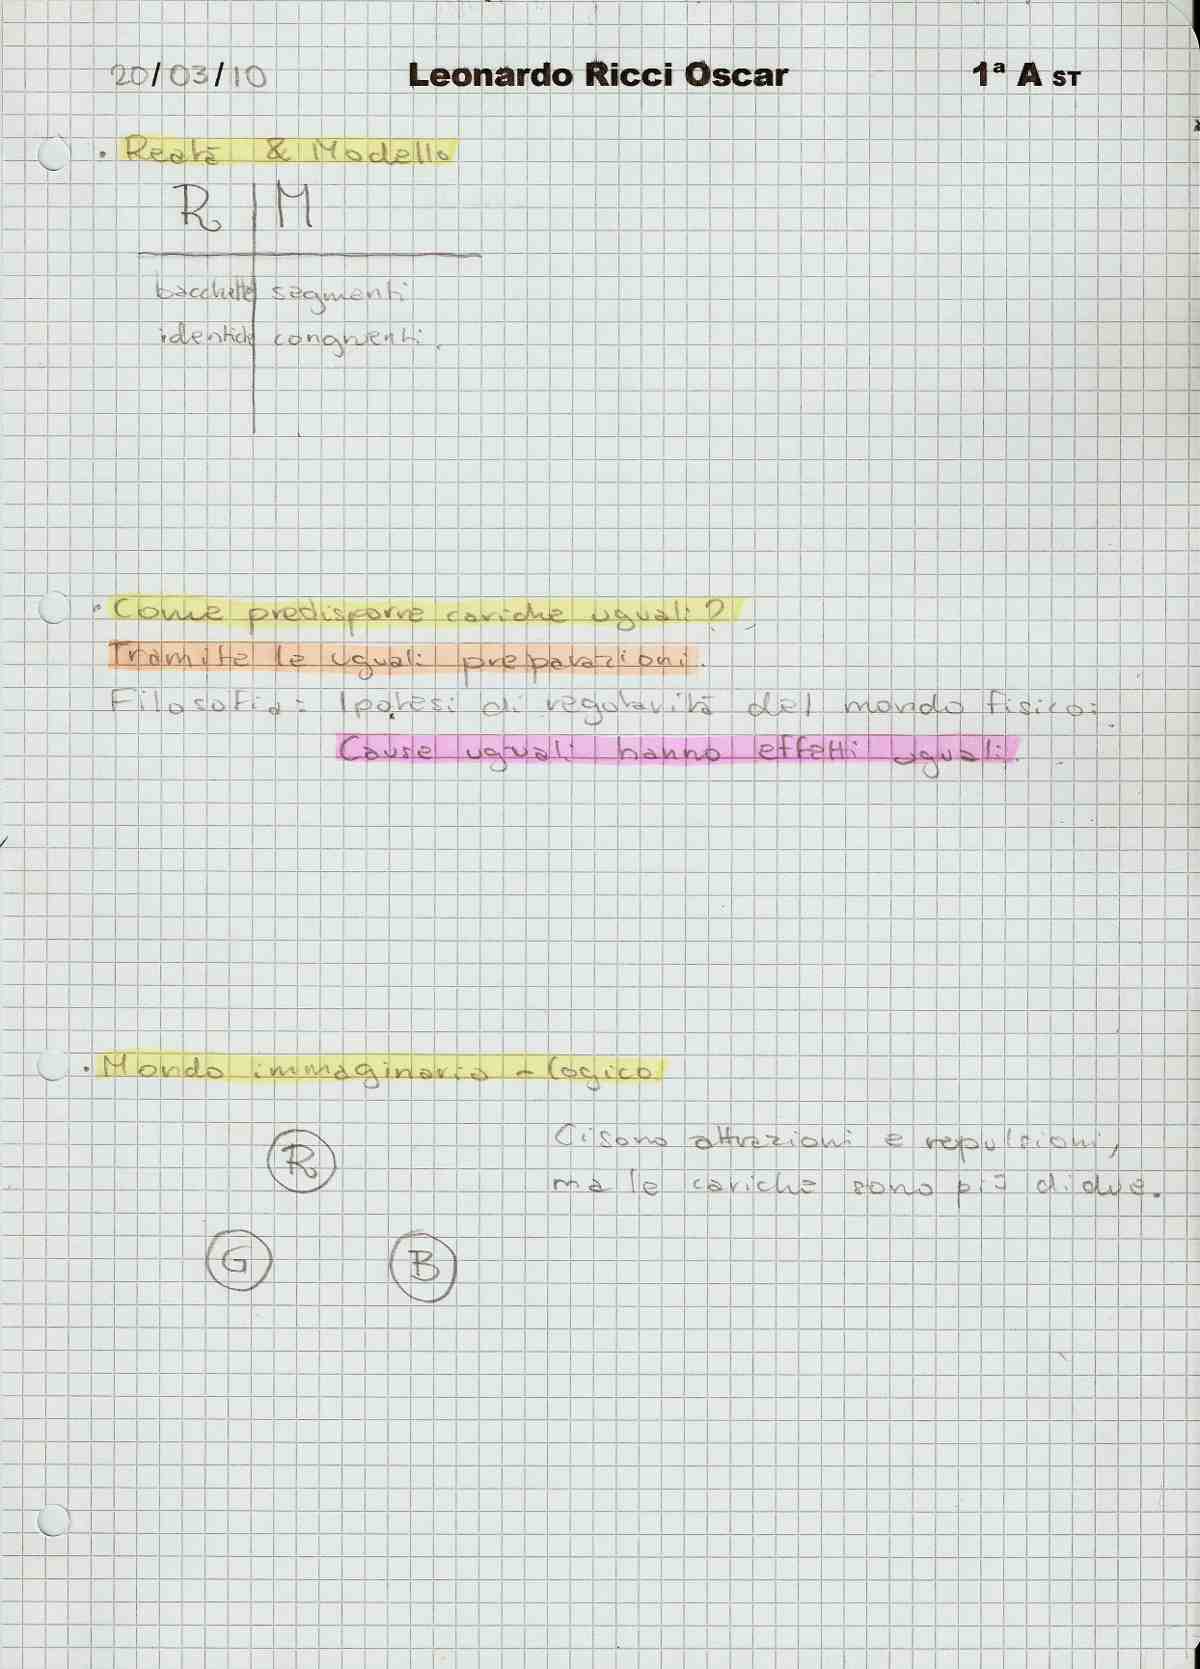 20/03/10 Leonardo Ricci Oscar 1ª A ST
. Reatà & Modello
R M
bacchette segmenti
identiche congruenti.
. Come predisporre cariche uguali?
Tramite le uguali preparazioni.
Filosofia: Ipotesi di regolarità del mondo fisico:
Cause uguali hanno effetti uguali.
. Mondo immaginario - logico
R
Ci sono attrazioni e repulsioni,
ma le cariche sono più di due.
G B